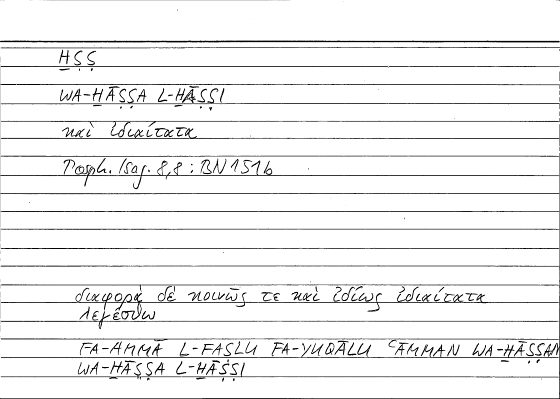 ḪṢṢ
WA-ḪĀṢṢA L-ḪĀṢṢI
καὶ ἰδιαίτατα
Porph. Isag. 8,8 : BN 151b
διαφορὰ δὲ κοινῶς τε καὶ ἰδίως ἰδιαίτατα
λεγέσθω
FA-AMMĀ L-FAṢLU FA-YUQĀLU ʿĀMMAN WA-ḪĀṢṢAN
WA-ḪĀṢṢA L-ḪĀṢṢI